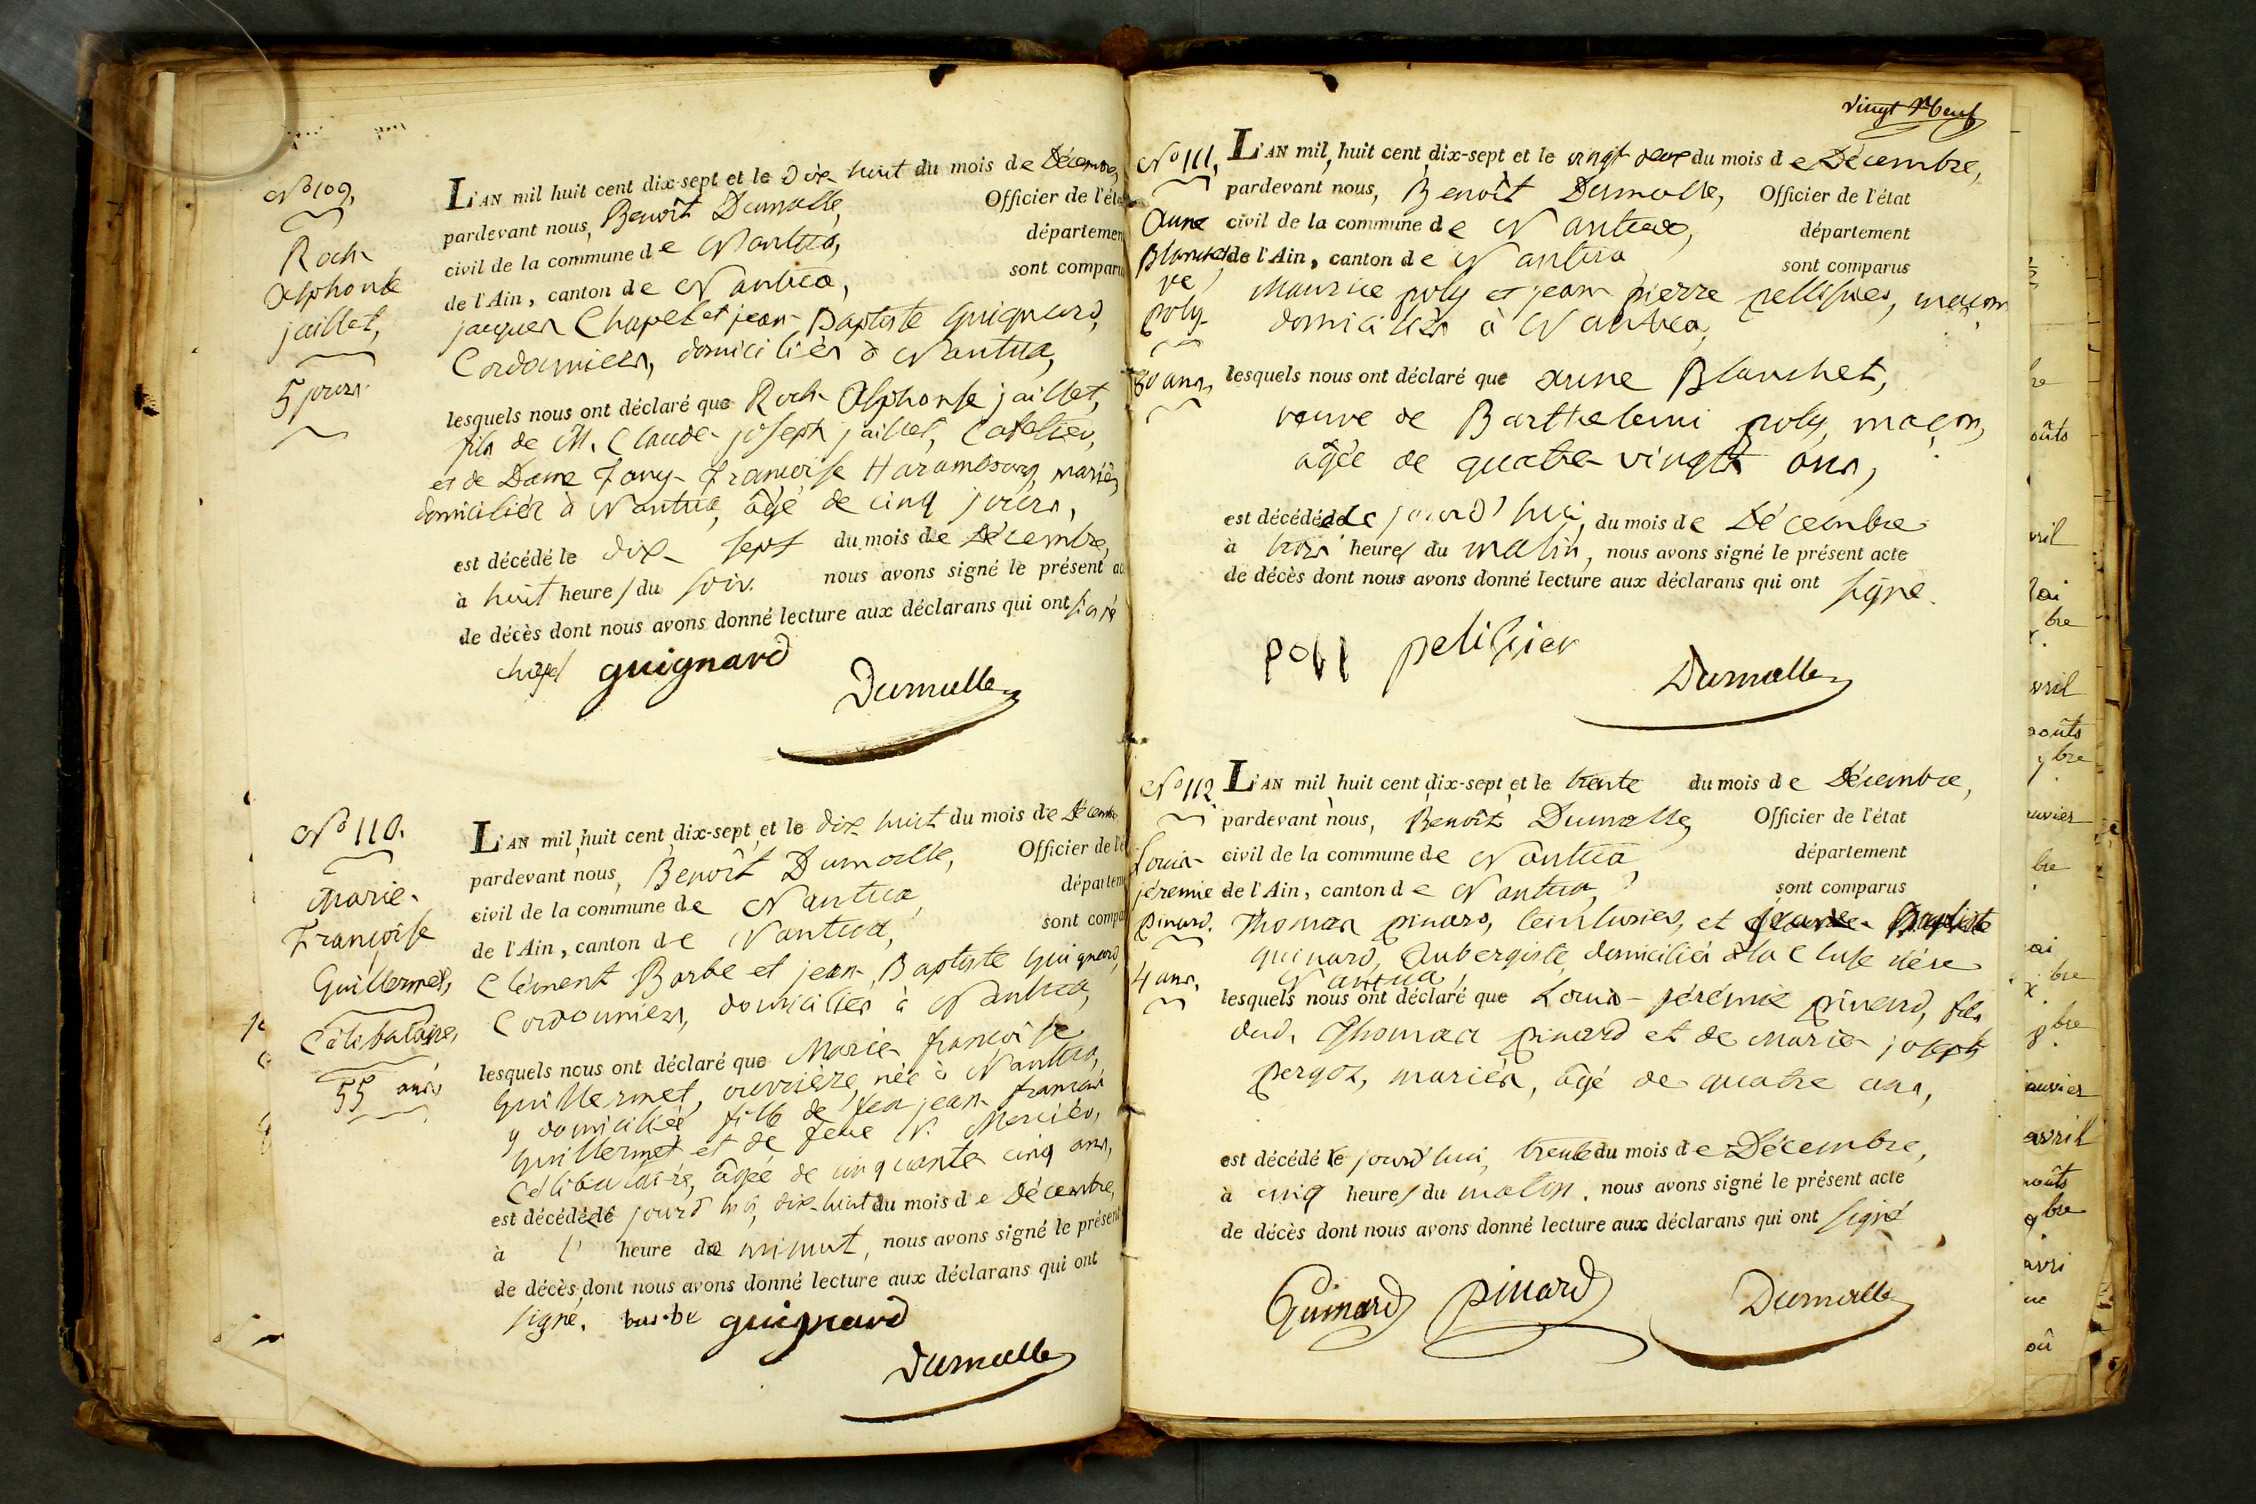 N.º 109,
Roch
Alphonse
jaillet,
5 jours.
L'AN mil huit cent dix-sept et le dix huit du mois de Décembre,
pardevant nous, Benoît Dumolle, Officier de l'éta
civil de la commune de Nantua, départemen
de l'Ain, canton de Nantua, sont comparu
jacques Chapel et jean Baptiste Guignard,
Cordonniers, domiciliés à Nantua,
lesquels nous ont déclaré que Roch Alphonse jaillet,
fils de M. Claude joseph jaillet,
et de Dame Fany Françoise mariés,
domiciliés à Nantua, âgé de cinq jours,
est décédé le dix sept du mois de Décembre,
à huit heures du soir. nous avons signé le présent ac
de décès dont nous avons donné lecture aux déclarans qui ont signé
chapel guignard
Dumolle
N.º 110.
Marie
Françoise
Guillermet,
Célibataire,
55 ans
L'AN mil huit cent dix-sept et le dix huit du mois de Décemb
pardevant nous, Benoît Dumolle, Officier de l'é
civil de la commune de Nantua, départeme
de l'Ain, canton de Nantua, sont compa
Clément Barbe et jean Baptiste Guignard,
Cordonniers, domiciliés à Nantua,
lesquels nous ont déclaré que Marie françoise
Guillermet, ouvrière, née à Nantua,
y domiciliée, fille de feu jean françois
Guillermet et de feue N. Mercier,
Célibataire, âgée de cinquante cinq ans,
est décédée le jourd'hui, dix-huit du mois de Décembre,
à l' heure de minuit, nous avons signé le présent
de décès dont nous avons donné lecture aux déclarans qui ont
signé. barbe guignard
Dumolle
vingt Neuf
N.º 111,
Anne
Blanchet
ve
poly
80 ans,
L'AN mil huit cent dix-sept et le vingt deux du mois de Décembre,
pardevant nous, Benoît Dumolle, Officier de l'état
civil de la commune de Nantua, département
de l'Ain, canton de Nantua sont comparus
Maurice poly et jean pierre pellissier, maçons
domiciliés à Nantua,
lesquels nous ont déclaré que Anne Blanchet,
veuve de Barthelemi poly, maçon,
âgée de quatre vingt ans,
est décédée le jourd'hui, du mois de Décembre
à trois heures du matin, nous avons signé le présent acte
de décès dont nous avons donné lecture aux déclarans qui ont signé.
poly pelissier
Dumolle
N.º 112
Louis
jéremie
pinard.
4 ans,
L'AN mil huit cent dix-sept et le trente du mois de Décembre,
pardevant nous, Benoît Dumolle, Officier de l'état
civil de la commune de Nantua, département
de l'Ain, canton de Nantua, sont comparus
Thomas pinard, teinturier, et Baptiste
guinard, Aubergiste, domiciliés à la Cluse
Nantua,
lesquels nous ont déclaré que Louis jérémie pinard, fils
dud. Thomas pinard et de Marie joseph
pergoz, mariés, âgé de quatre ans,
est décédé le jourd'hui, trente du mois de Décembre,
à cinq heures du matin, nous avons signé le présent acte
de décès dont nous avons donné lecture aux déclarans qui ont signé
Guinard pinard Dumolle
bre
oûts
vril
bre
vril
aoûts
bre
bre
bre
bre
avril
bre